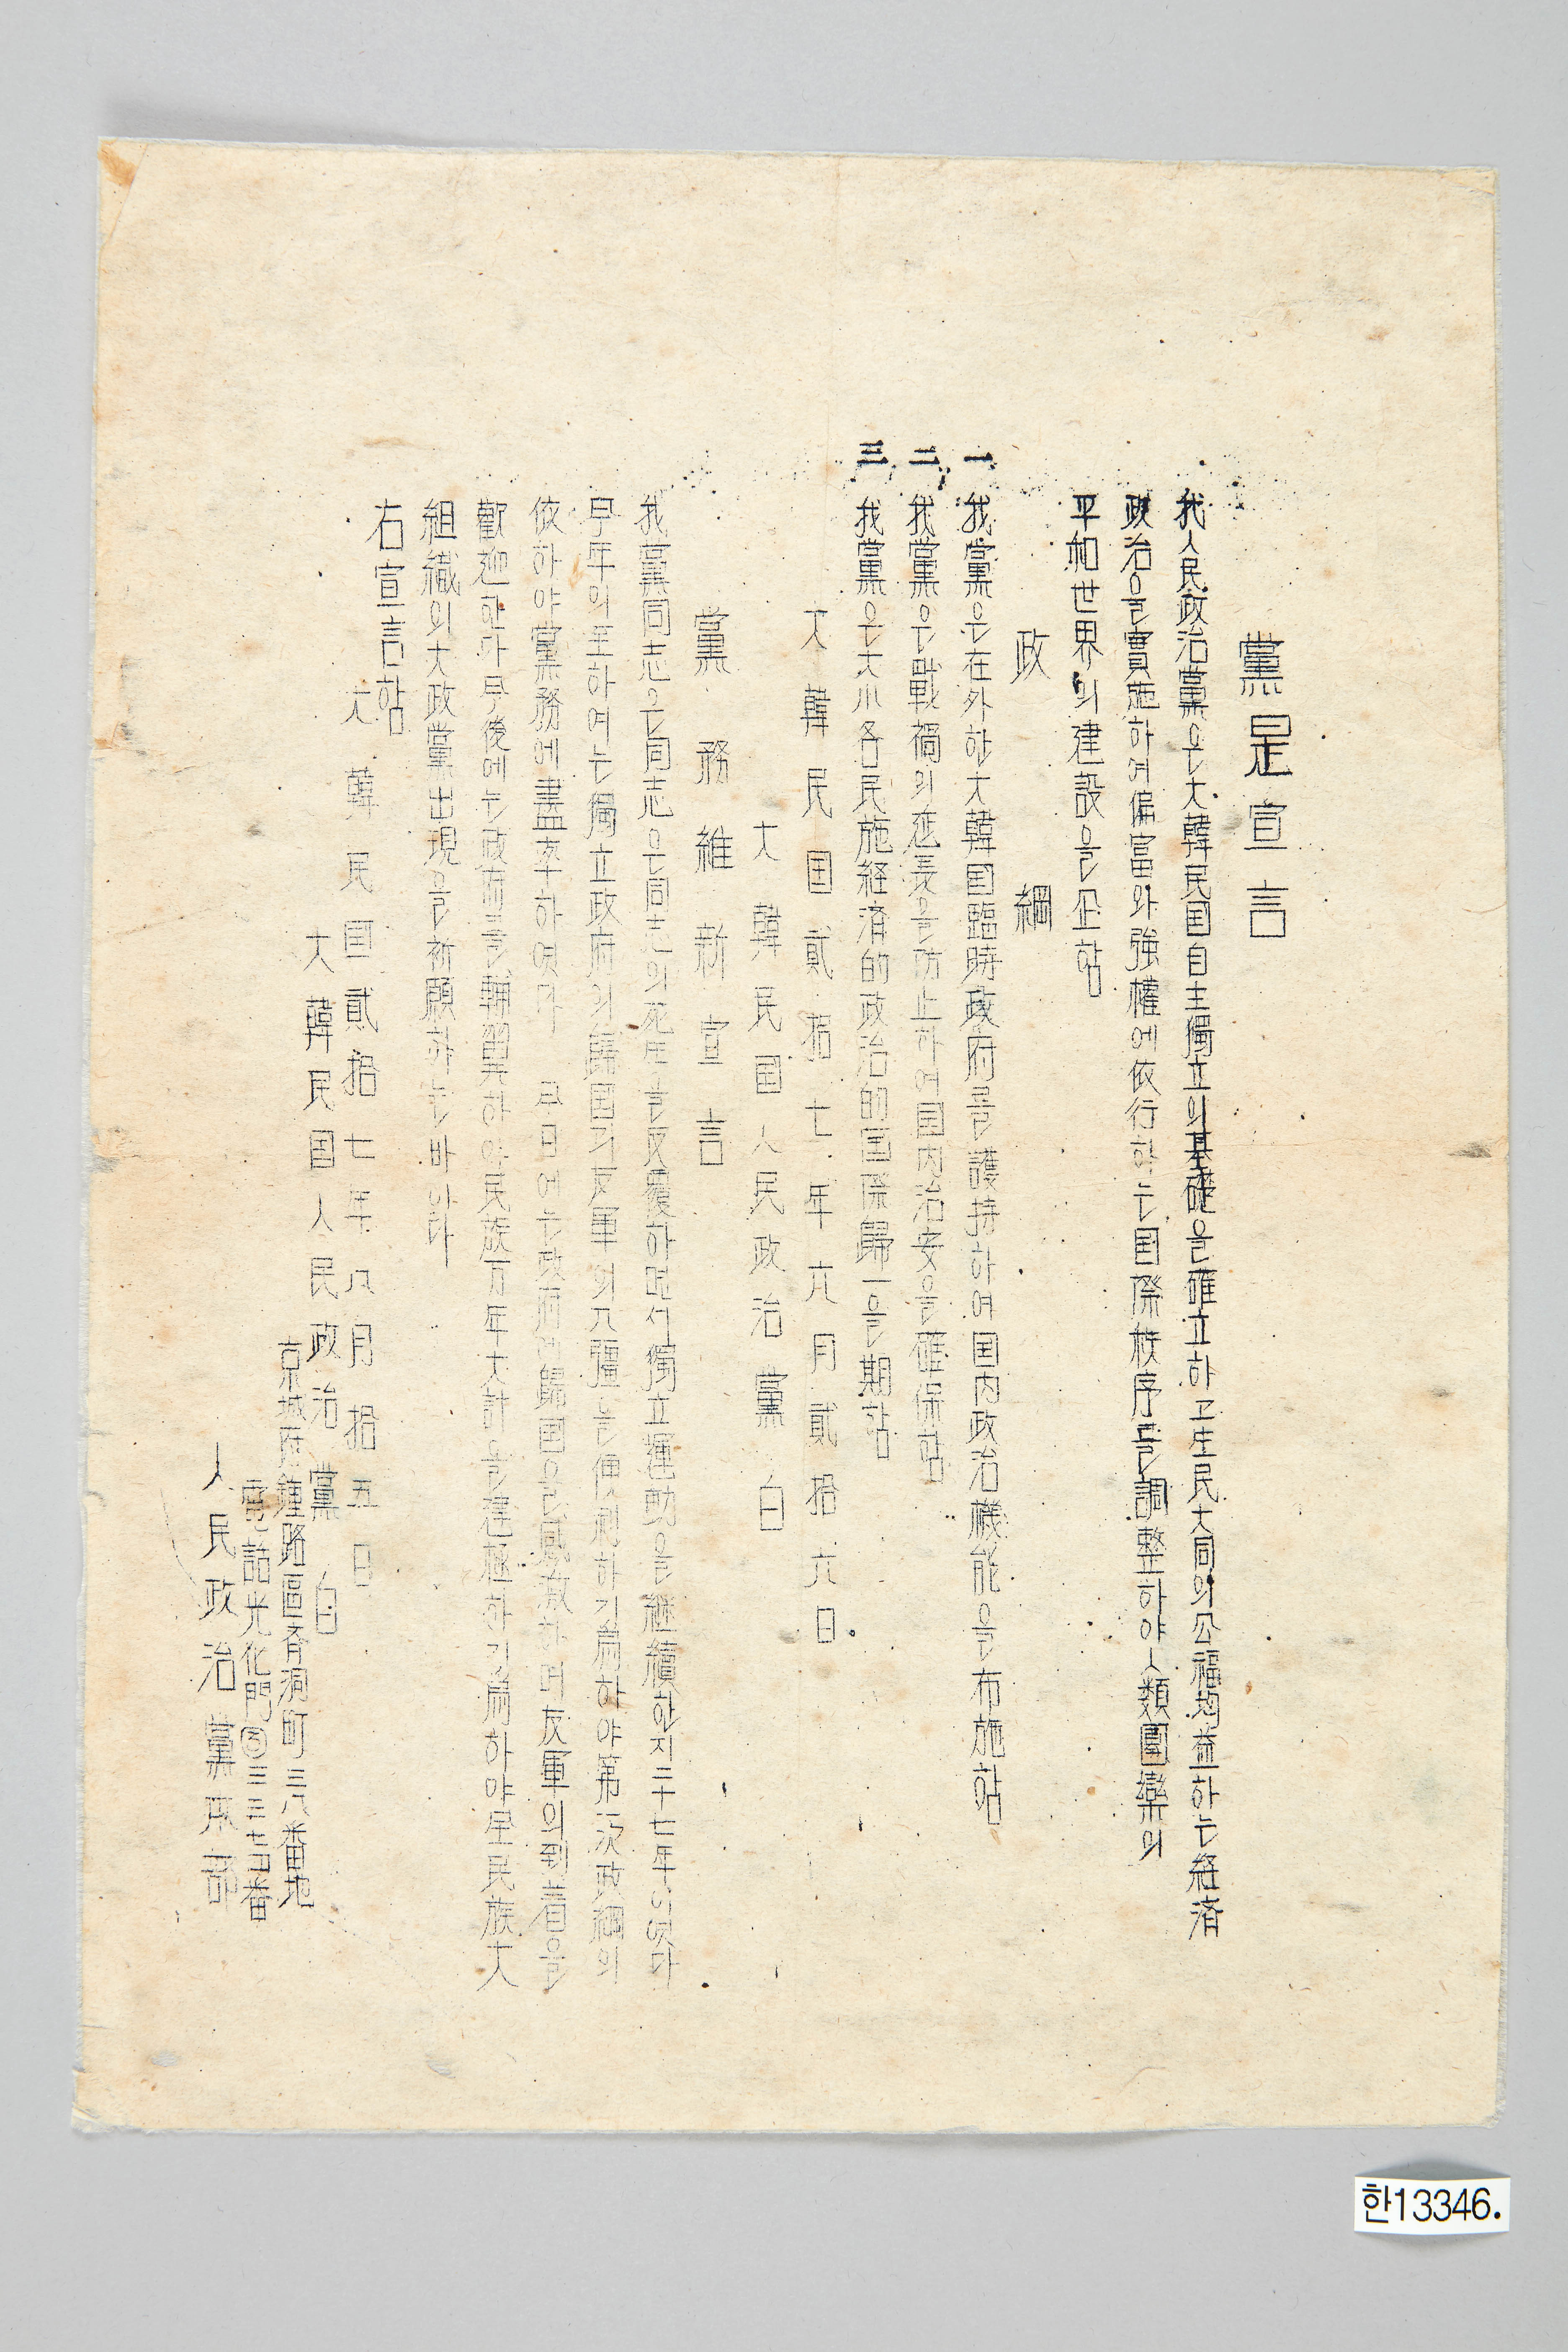 黨是宣言
我人民政治黨은大韓民国自主獨立의基礎을確立하고生民大同의公福均益하는経済
政治을實施하여偏富와強權에依行하는国際秩序를調整하야人類團欒의
平和世界의建設을企함
政綱
一 我黨은在外한大韓国臨時政府를護持하여国内政治機能을布施함
二 我黨은戰禍의延長을防止하여国内治安을確保함
三 我黨은大小各民施経済的政治的国際歸一을期함
大韓民国貳拾七年六月貳拾六日
大韓民国人民政治黨 白
黨務維新宣言
我黨同志은同志은同志의死生을反覆하면서獨立運動을継續한지三十七年이엿다
早年의至하여는獨立政府의歸国과友軍의入疆을便利하기爲하야第一次政綱의
依하야黨務에盡率하엿다 早日에는政府에歸国을感激하며友軍의到着을
歡迎한다早後에는政府를輔翼하야民族万年大計을建極하기爲하야全民族大
組織의大政黨出現을祈願하는바이라
右宣言함
大韓民国貳拾七年八月拾五日
大韓民国人民政治黨 白
京城府鍾路區齊洞町三八番地
電話光化門③三三七番
人民政治黨本部
한13346.